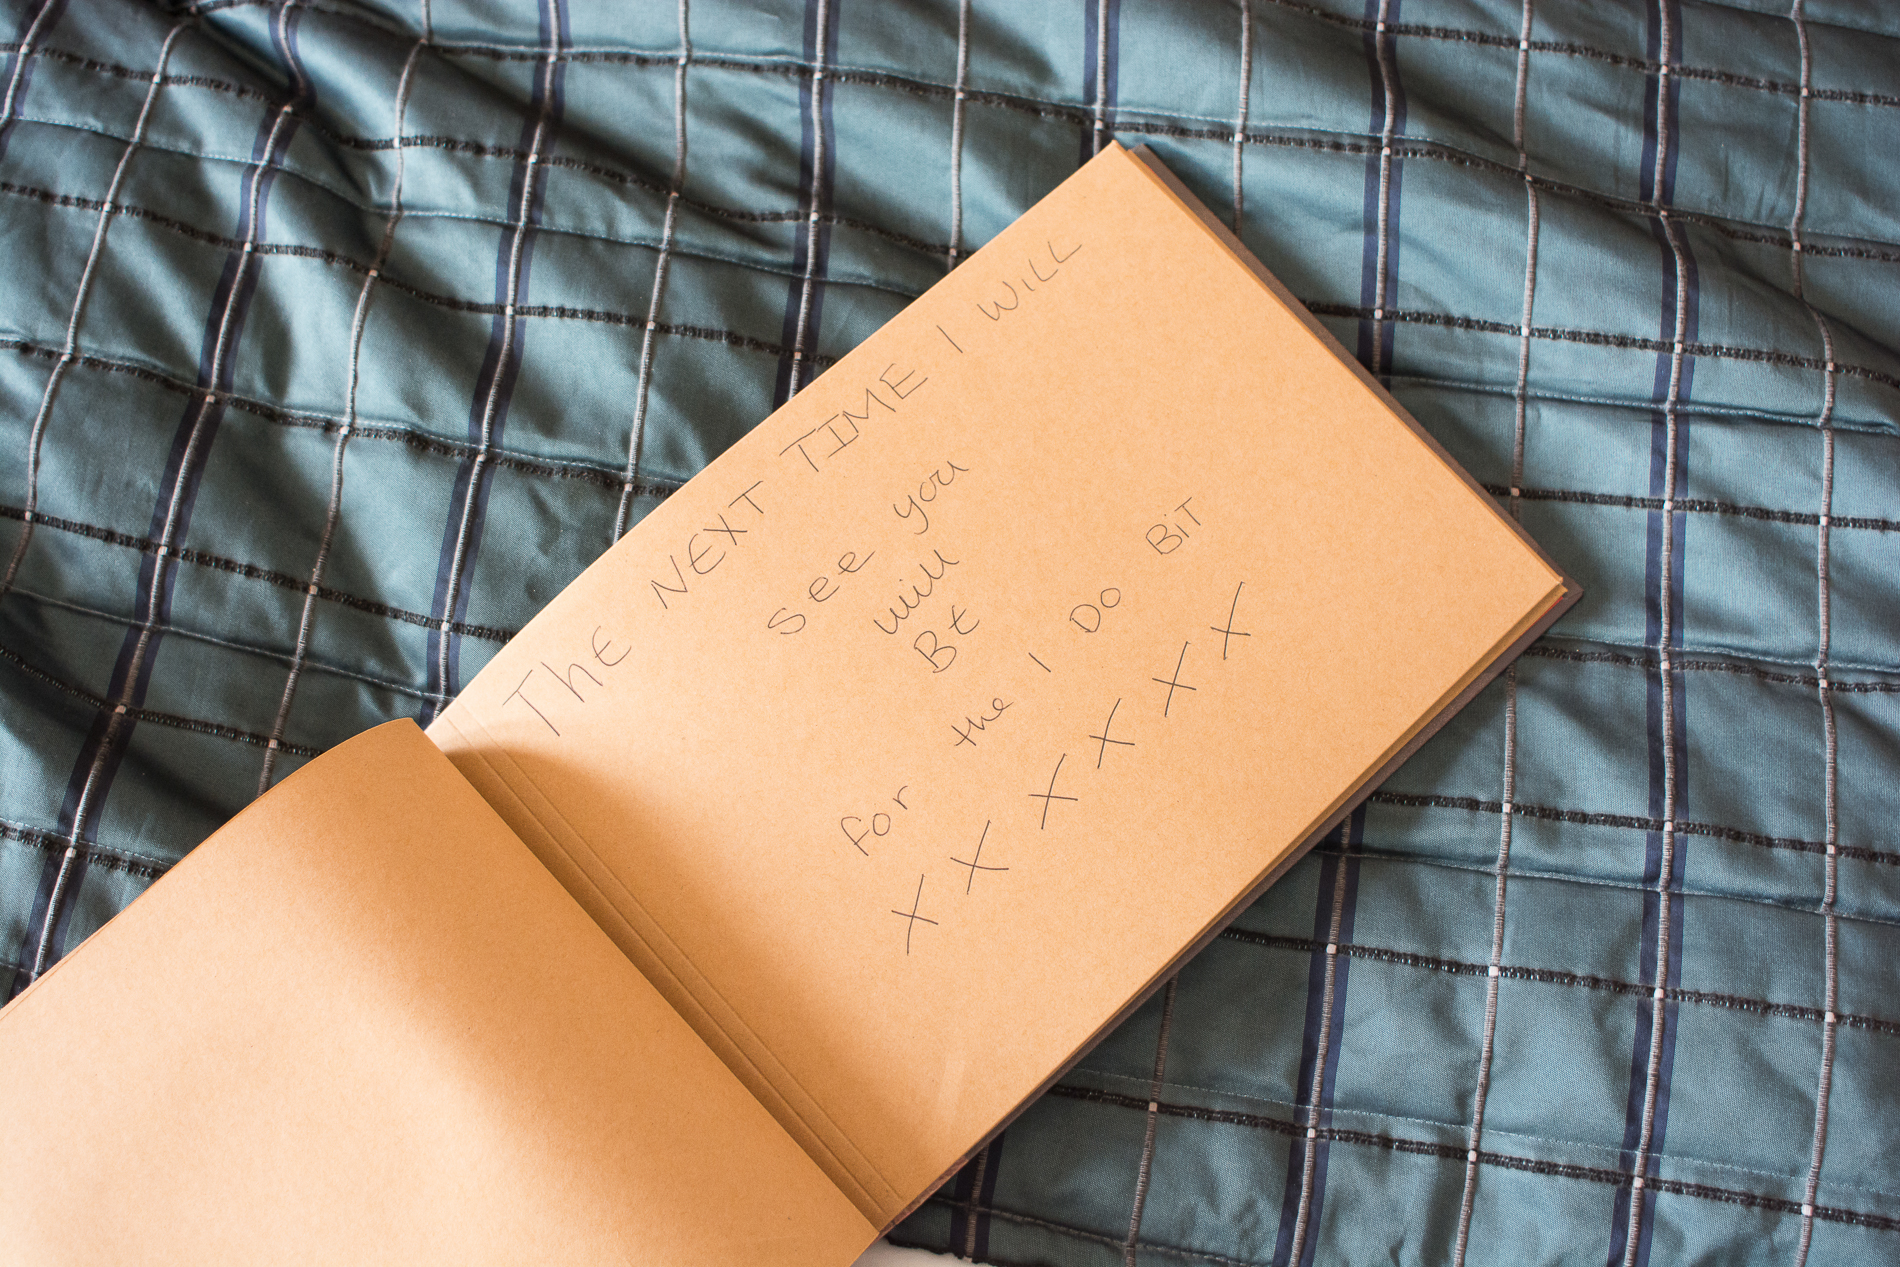 THE NEXT TIME I WILL
see you
will
BE
for the I DO BiT
X X X X X X